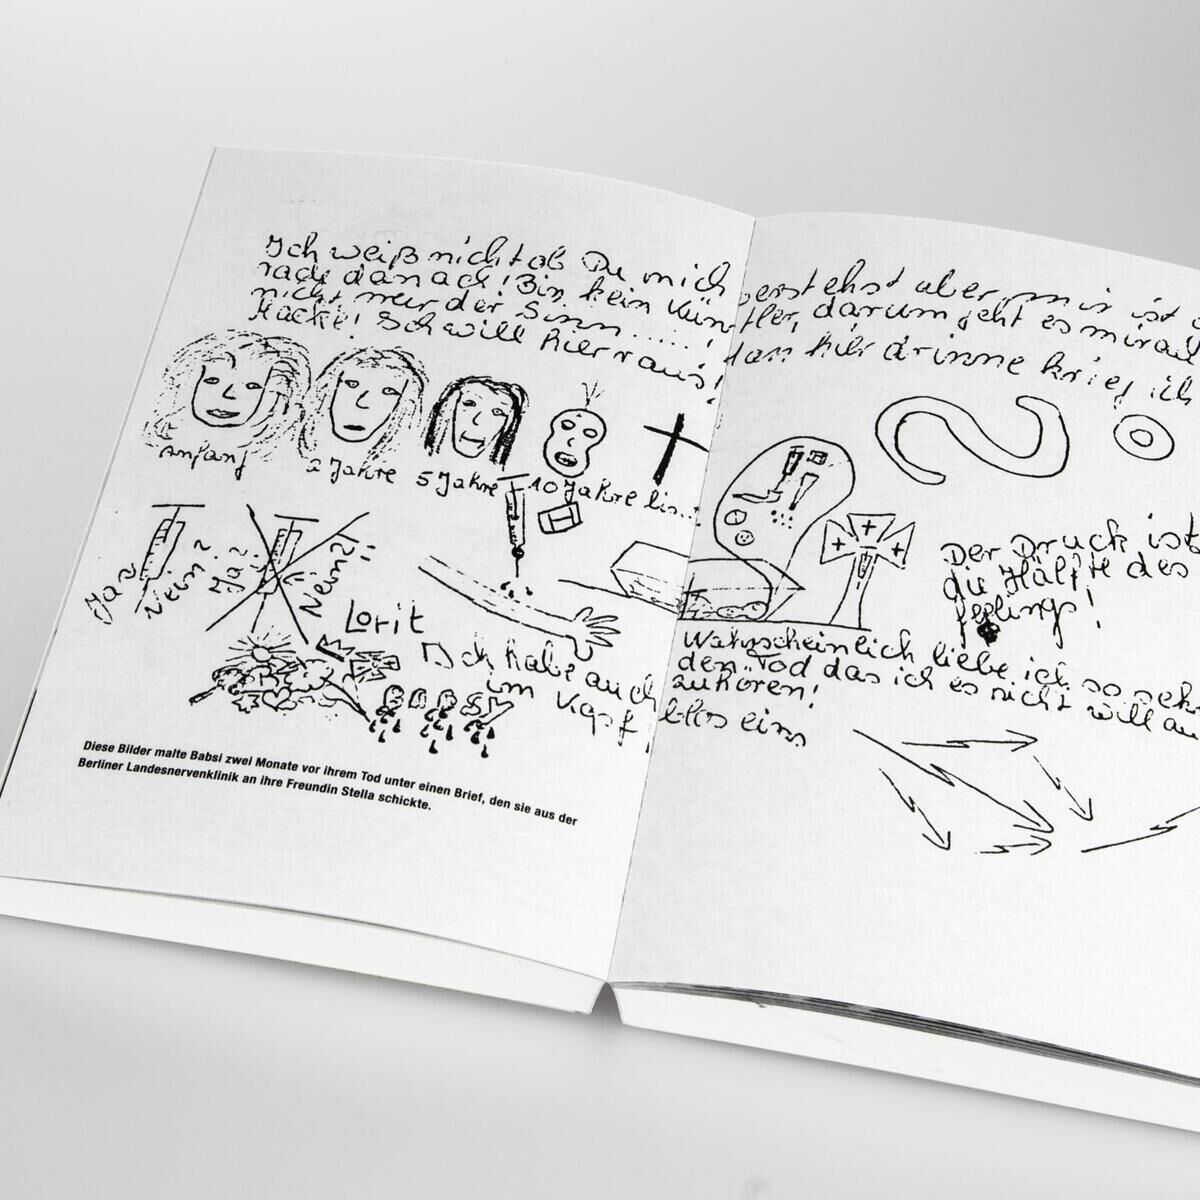 Ich weiß nicht ob Du mich verstehst aber mir ist
rade danach! Bin kein Künstler, darum geht es mir
nicht, nur der Sinn.....!
Hacke! Ich will hier raus! dan hir drinne krieg ich
Anfang
2 Jahre
5 Jahre
10 Jahre
Ja?
Nein?
Ja?
Nein?!
Lorit
Ich habe auch
im Kopf
BABSY
Diese Bilder malte Babsi zwei Monate vor ihrem Tod unter einen Brief, den sie aus der
Berliner Landesnervenklinik an ihre Freundin Stella schickte.
Der Druck ist
die Hälfte des
feelings!
Wahrscheinlich liebe ich so sehr
den Tod das ich es nicht will
zuhören!
eins